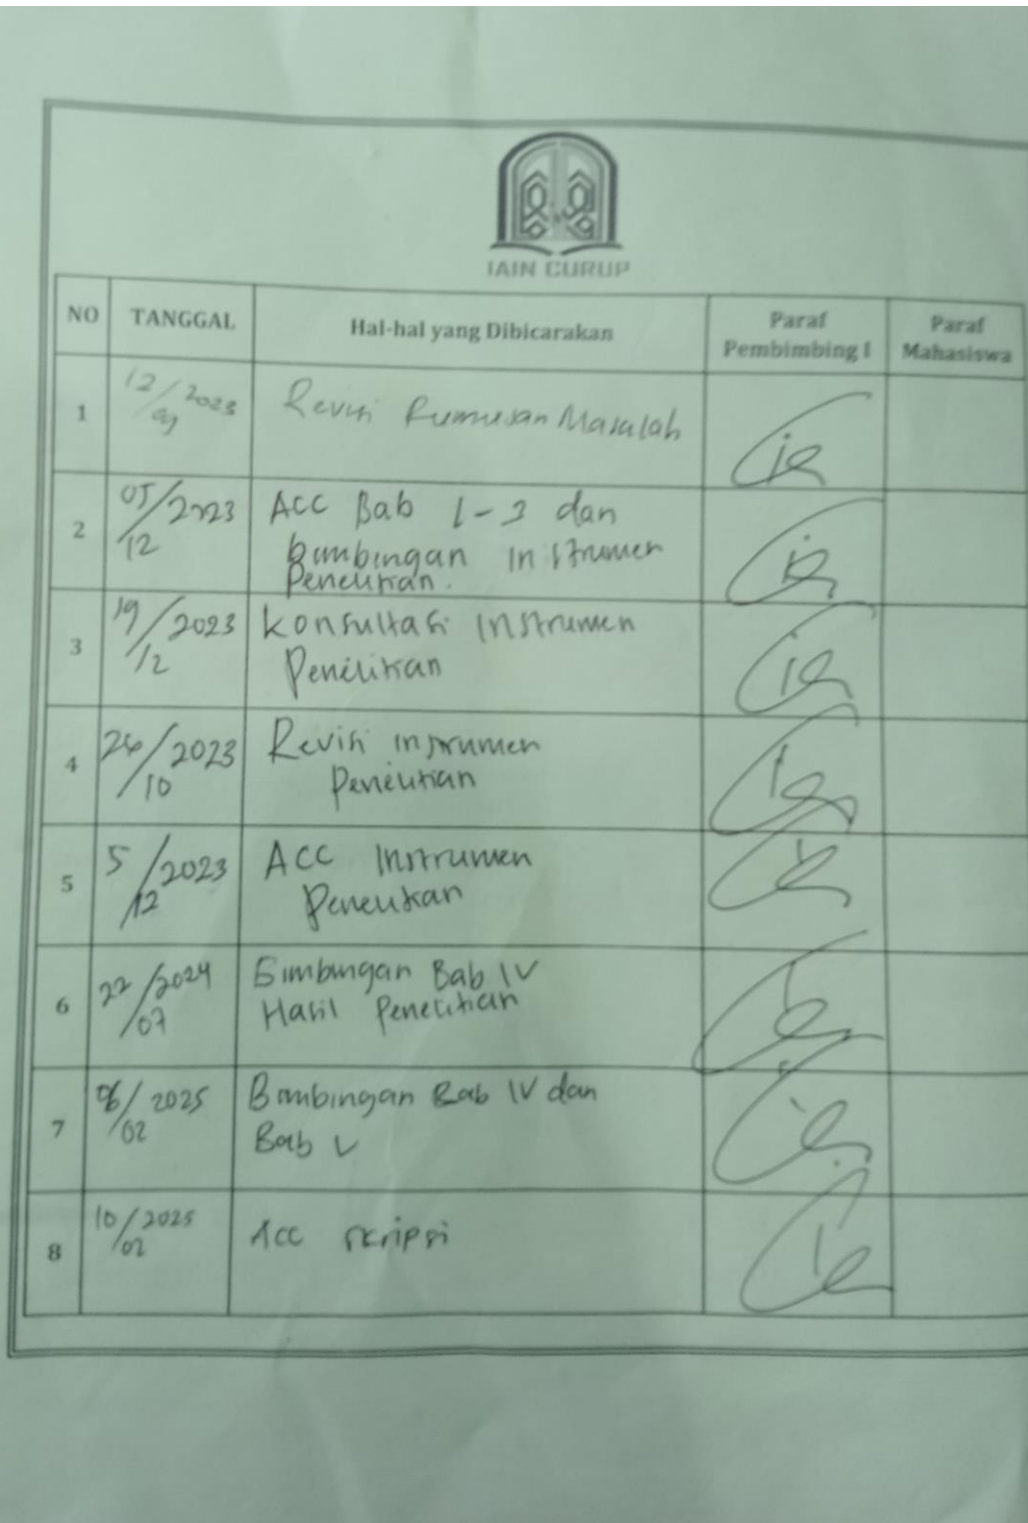 IAIN CURUP
NO TANGGAL Hal-hal yang Dibicarakan Paraf Pembimbing I Paraf Mahasiswa
1 12/09 2023 Revisi Rumusan Masalah
2 05/12 2023 ACC Bab 1-3 dan
bimbingan Instrumen
Penelitian.
3 19/12 2023 Konsultasi Instrumen
Penelitian
4 26/10 2023 Revisi instrumen
Penelitian
5 5/12 2023 ACC Instrumen
Penelitian
6 22/07 2024 Bimbingan Bab IV
Hasil Penelitian
7 06/02 2025 Bimbingan Bab IV dan
Bab V
8 10/02 2025 Acc skripsi